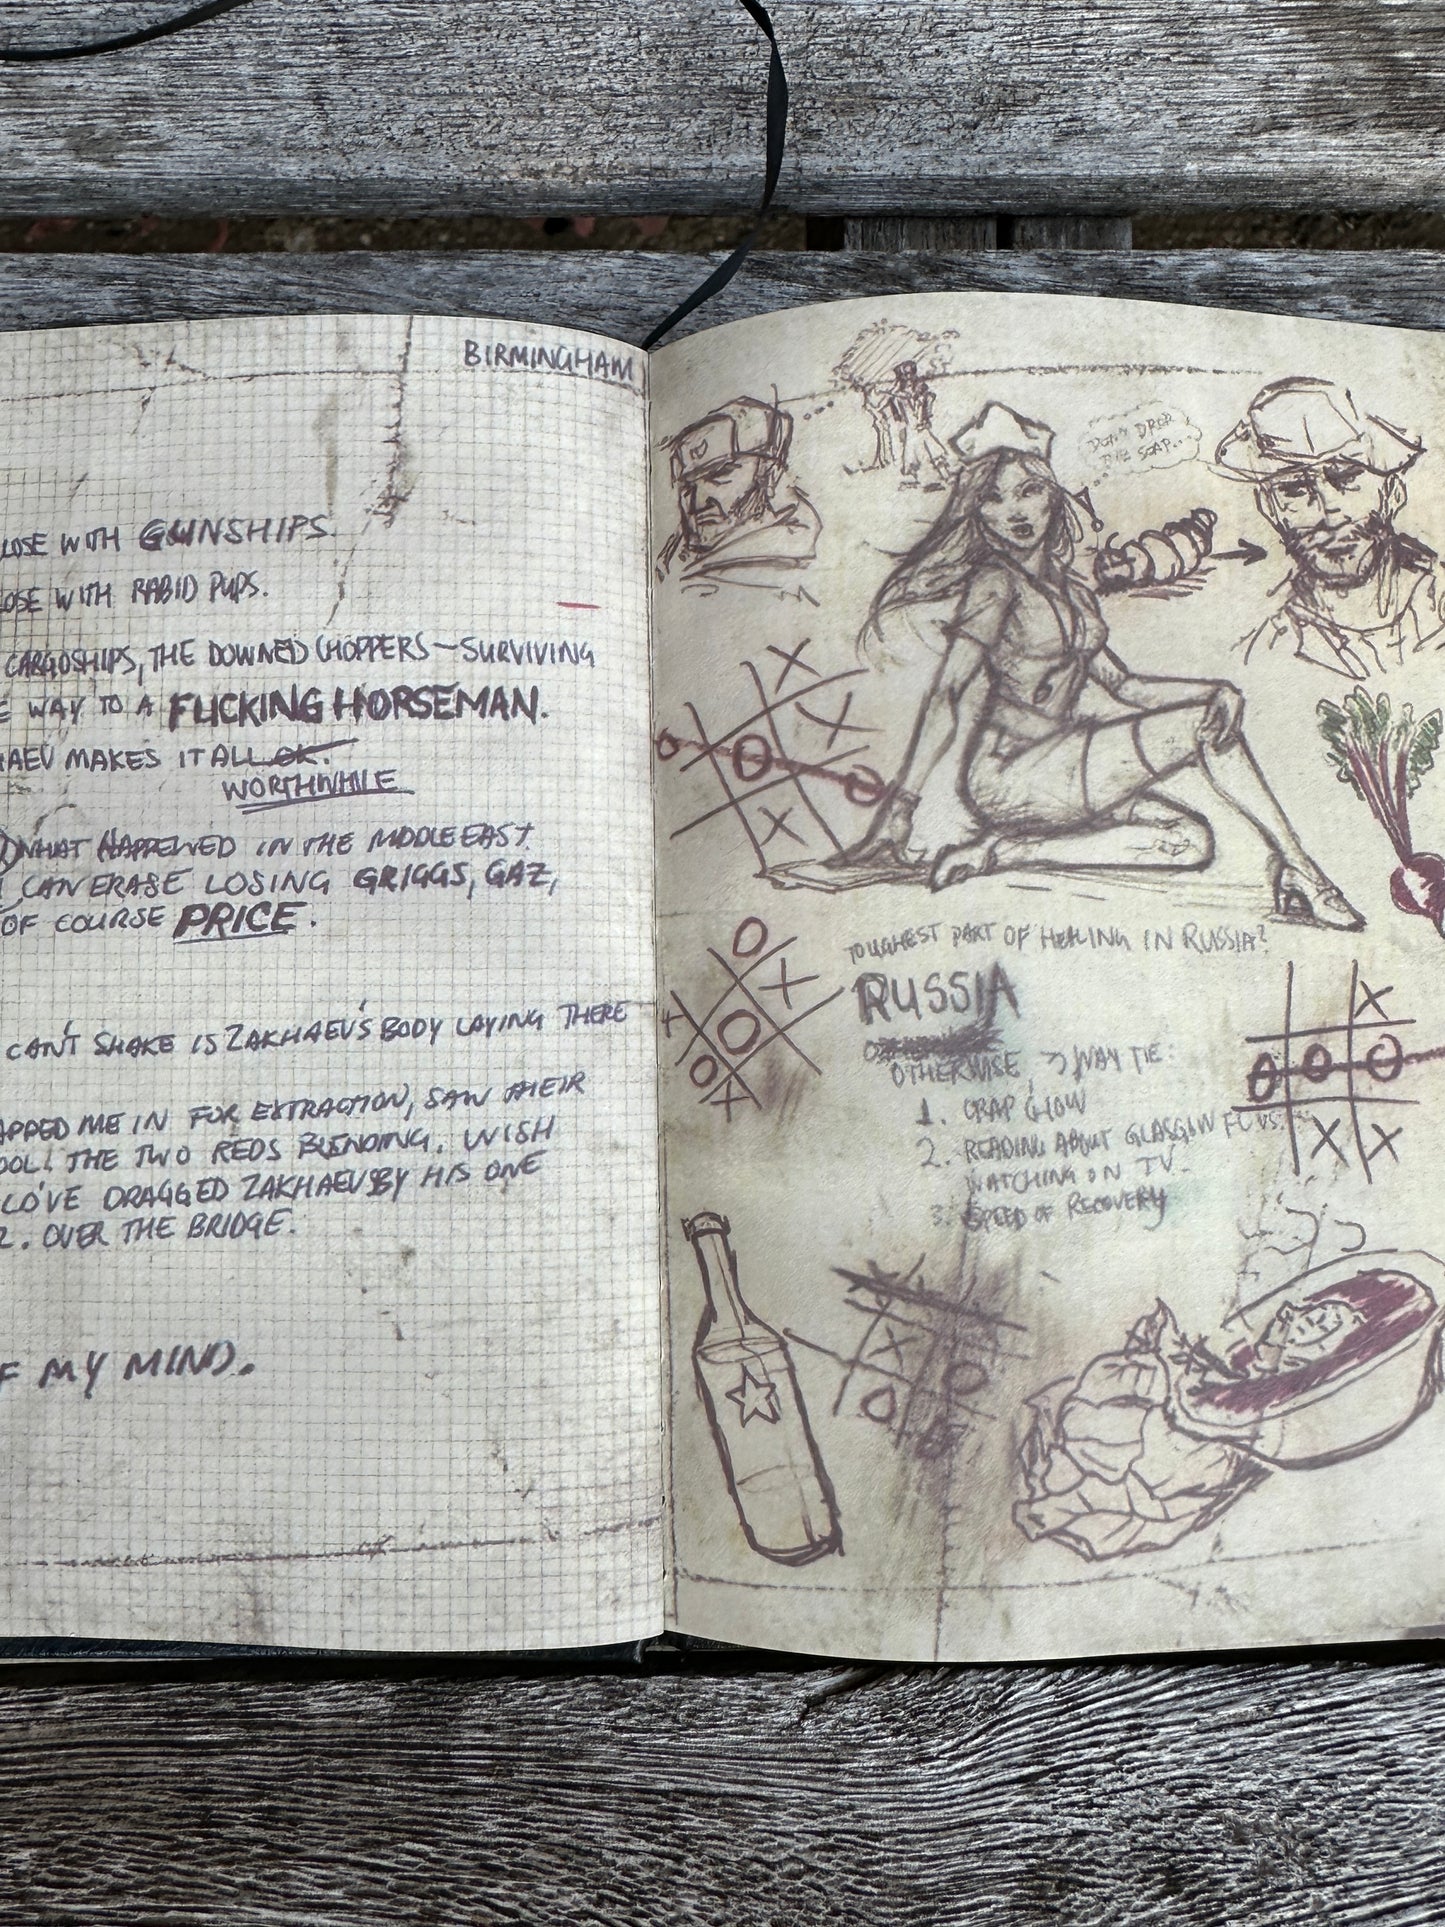 BIRMINGHAM
LOSE WITH GUNSHIPS.
LOSE WITH RABID PUPS.
CARGOSHIPS, THE DOWNED CHOPPERS – SURVIVING
WAY TO A FUCKING HORSEMAN.
HAEV MAKES IT ALL OK.
WORTHWHILE
WHAT HAPPENED IN THE MIDDLE EAST.
CAN ERASE LOSING GRIGGS, GAZ,
OF COURSE PRICE.
CAN'T SHAKE IS ZAKHAEV'S BODY LAYING THERE
APPED ME IN FOR EXTRACTION, SAW THEIR
OOL. THE TWO REDS BLENDING. WISH
LD'VE DRAGGED ZAKHAEV BY HIS ONE
OVER THE BRIDGE.
F MY MIND.
DON'T DROP
THE SOAP...
TOUGHEST PART OF HEALING IN RUSSIA?
RUSSIA
OTHERWISE, 3 WAY TIE:
1. CRAP CHOW
2. READING ABOUT GLASGOW FC VS.
WATCHING ON TV.
3. SPEED OF RECOVERY